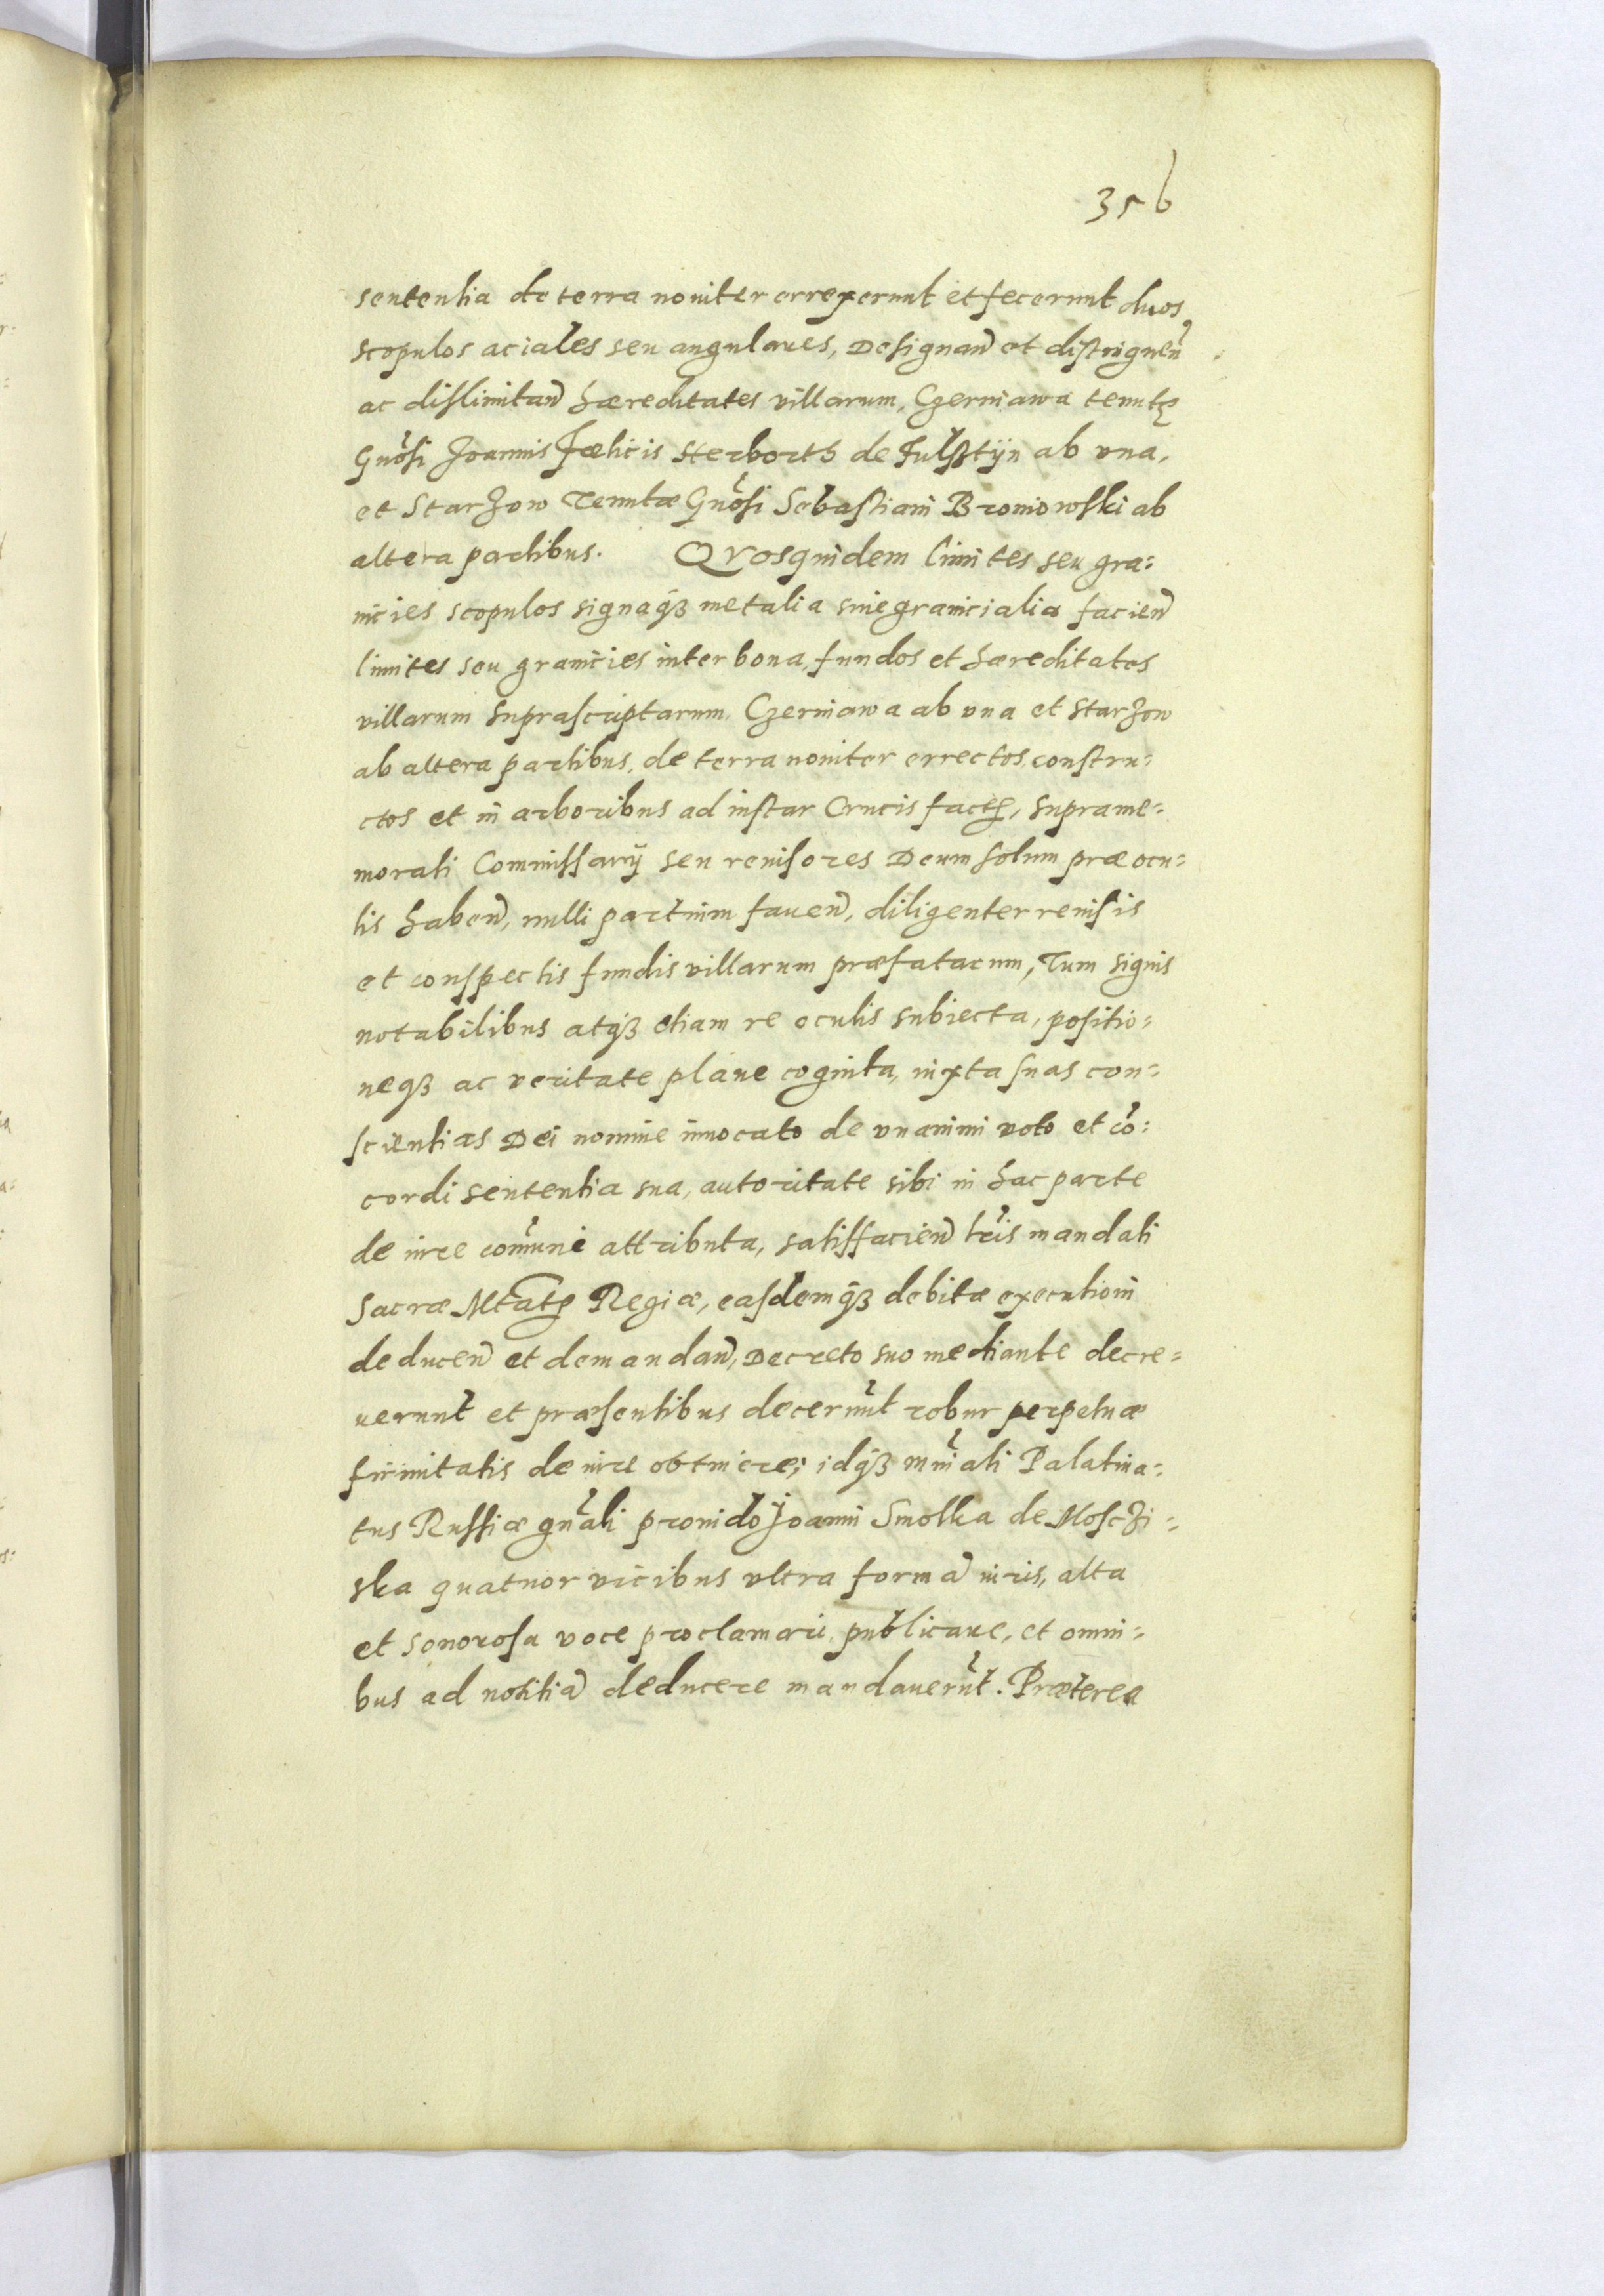 356
sententia de terra nouiter errexerunt et fecerunt duos
scopulos aciales seu angulares, Designan̄ et distinguen̄
ac dislimitan̄ hæreditates villarum, Czerniawa tenutę
Gnōsi Joannis Fælicis Herborth de Fulsztijn ab vna,
et Starzow Tenutæ Gnōsi Sebastiani Broniowski ab
altera partibus. QVosquidem limites seu gra⸗
nicies scopulos signaq̃ȝ metalia siue granicialia facien̄
limites seu granicies inter bona, fundos et hæreditates
villarum suprascriptarum, Czerniawa ab vna et Starzow
ab altera partibus, de terra nouiter errectos, constru⸗
ctos et in arboribus ad instar Crucis factę, supra me⸗
morati Commissarij seu reuisores Deum solum præ ocu⸗
lis haben̄, nulli partium fauen̄, diligenter reuisis
et conspectis fundis villarum præfatarum, Tum signis
notabilibus atq̃ȝ etiam re oculis subiecta, positio⸗
neq̃ȝ ac veritate plane cognita, iuxta suas con⸗
scientias Dei nomine inuocato de vnanimi voto et cō⸗
cordi sententia sua, autoritate sibi in hac parte
de iure com̄une attributa, satisfacien̄ lrīs mandati
Sacræ Mtatę Regiæ, easdemq̃ȝ debitæ executioni
deducen̄ et demandan̄, Decreto suo mediante decre⸗
uerunt et præsentibus decernūt robur perpetuæ
firmitatis de iure obtinere; idq̃ȝ mniāli Palatina⸗
tus Russiæ gnāli prouido Joanni Smolka de Moszczi⸗
ska quatuor vicibus vltra formā iuris, alta
et sonorosa voce proclamari, publicare, et omni⸗
bus ad notitiā deducere mandauerūt. Præterea